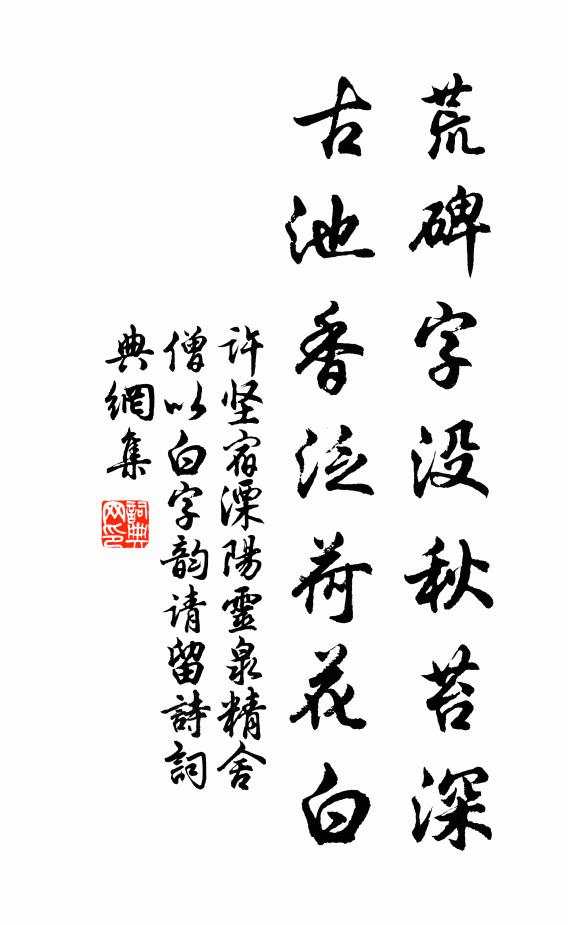 荒碑字没秋苔深
古池香泛荷花白
许坚宿溧陽靈泉精舍
僧以白字韵请留詩詞
典網集
詞典网印